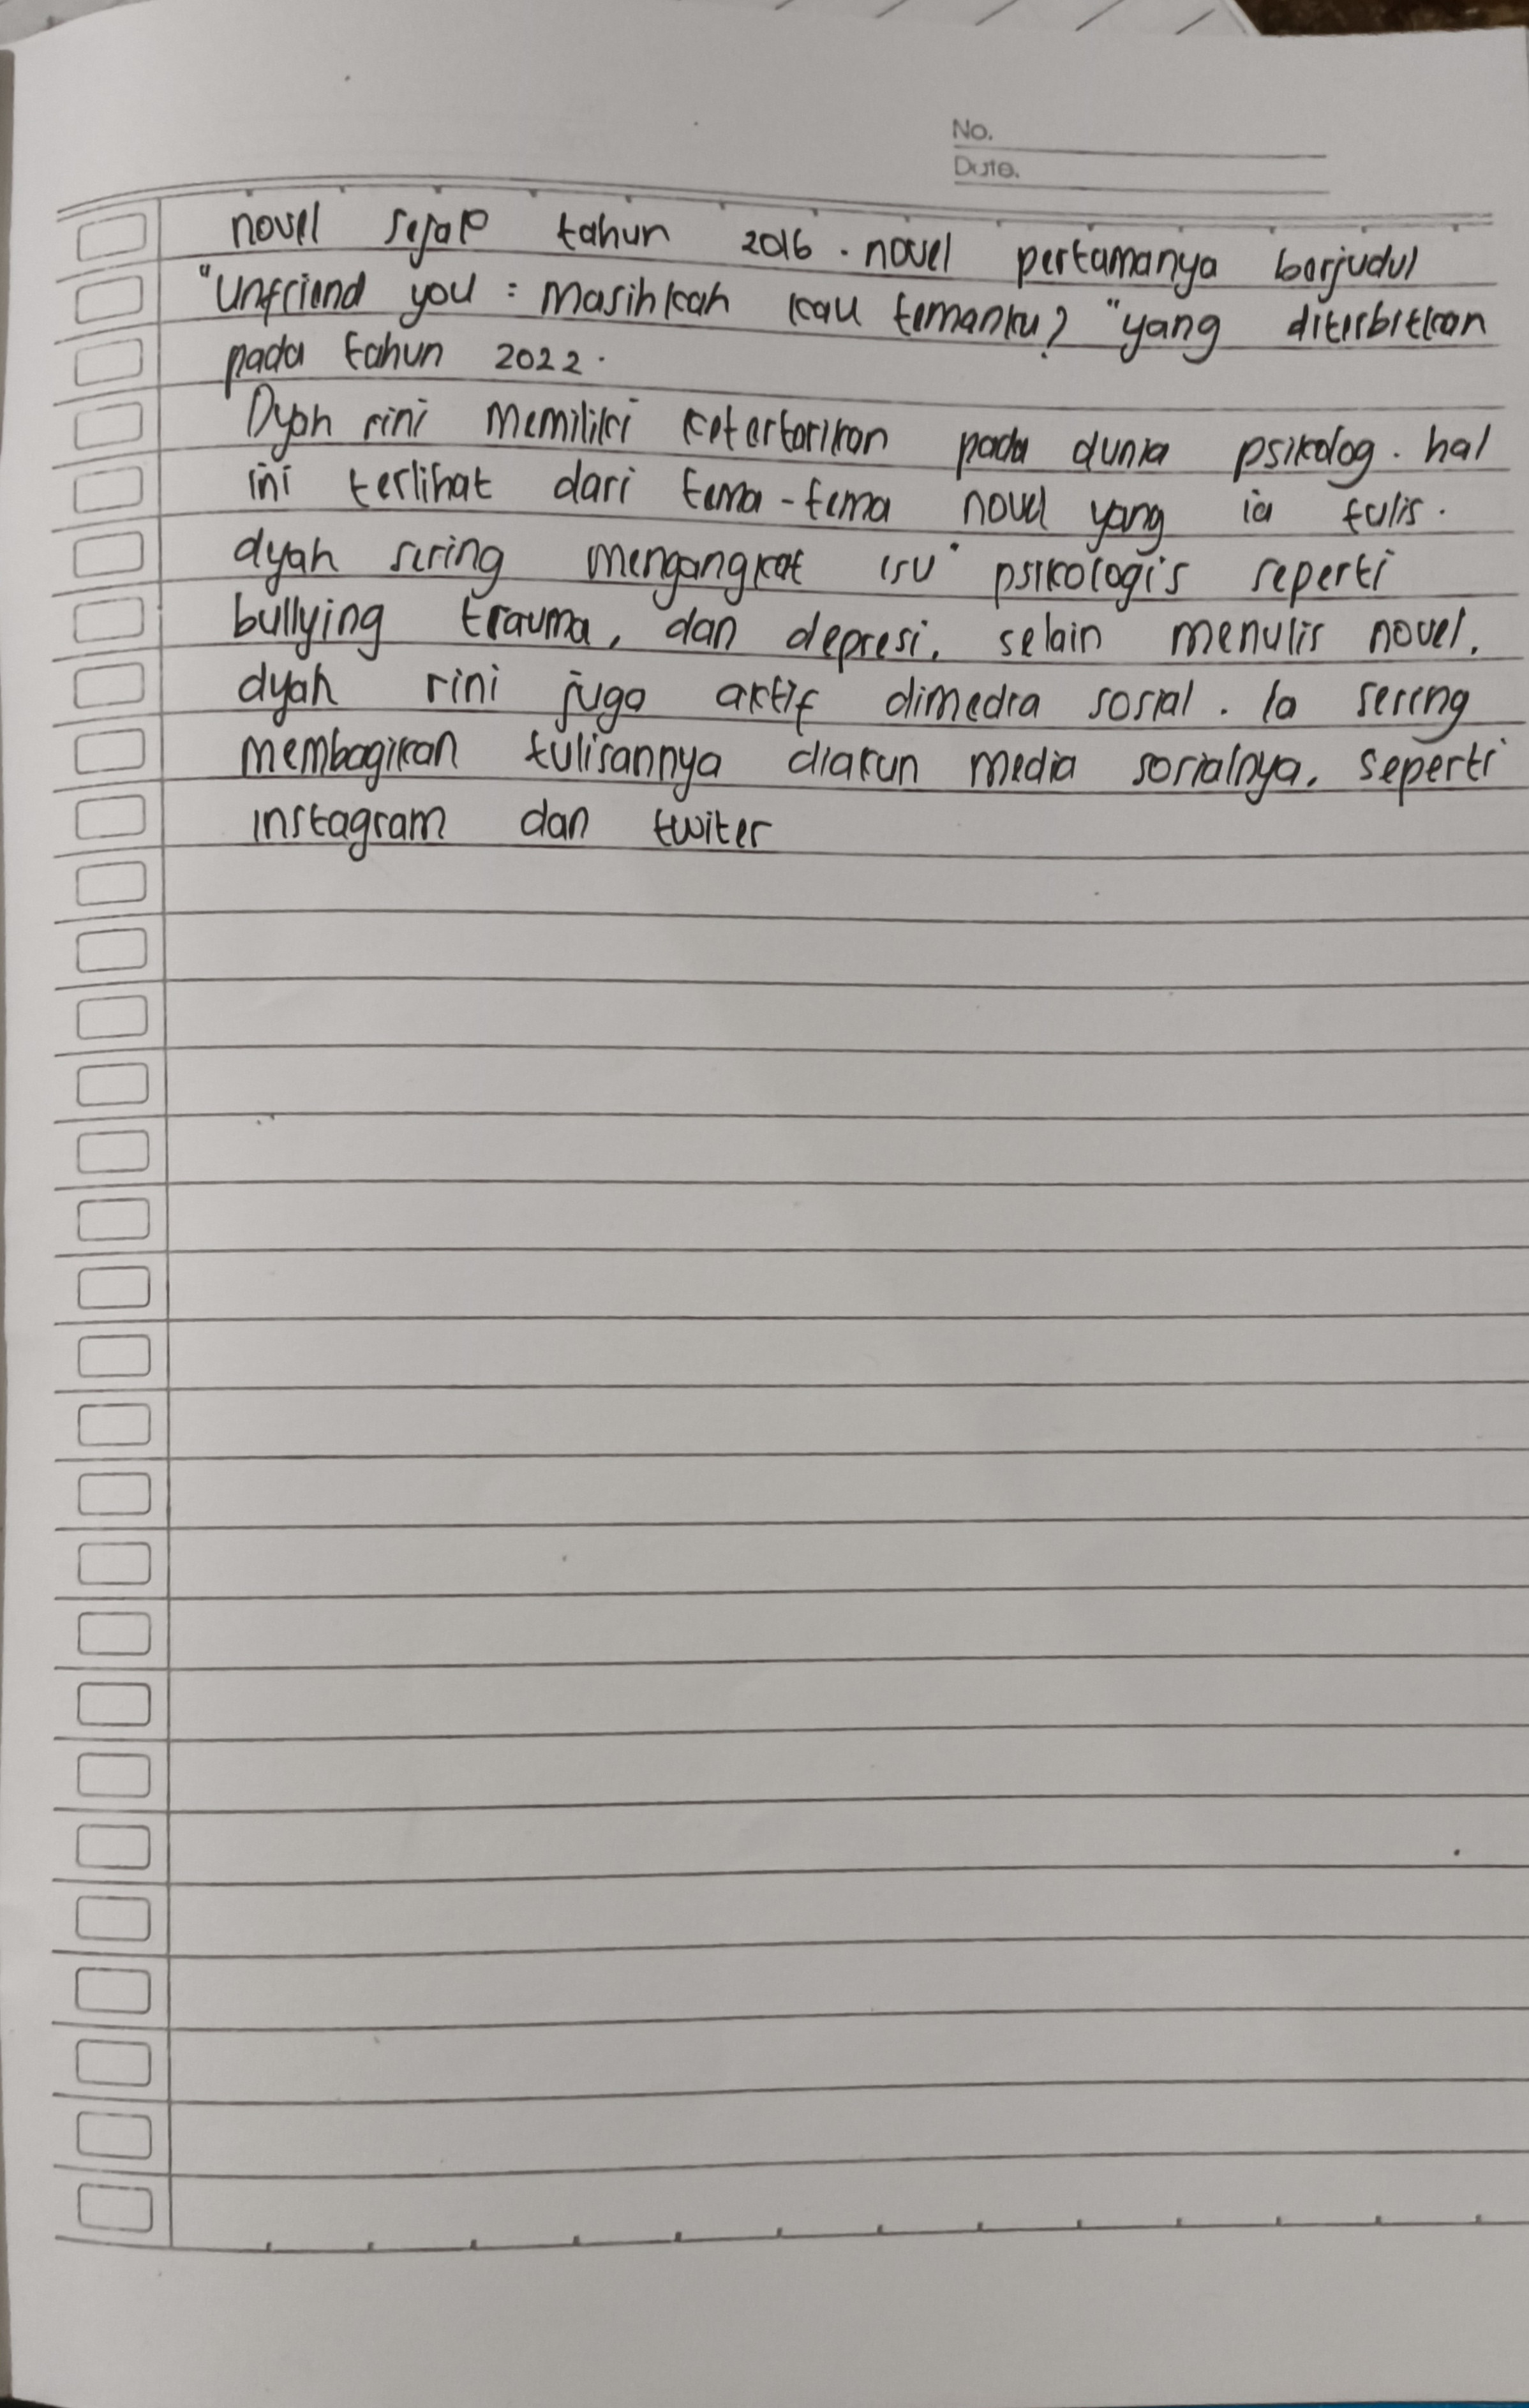 No.
Date.
novel sejak tahun 2016. novel pertamanya berjudul
"Unfriend you : Masihkah kau temanku?" yang diterbitkan
pada tahun 2022.
Dyah rini memiliki ketertarikan pada dunia psikolog. hal
ini terlihat dari tema-tema novel yang ia tulis.
dyah sering mengangkat isu psikologis seperti
bullying trauma, dan depresi, selain menulis novel,
dyah rini juga aktif dimedia sosial. Ia sering
membagikan tulisannya diakun media sosialnya, seperti
instagram dan twiter